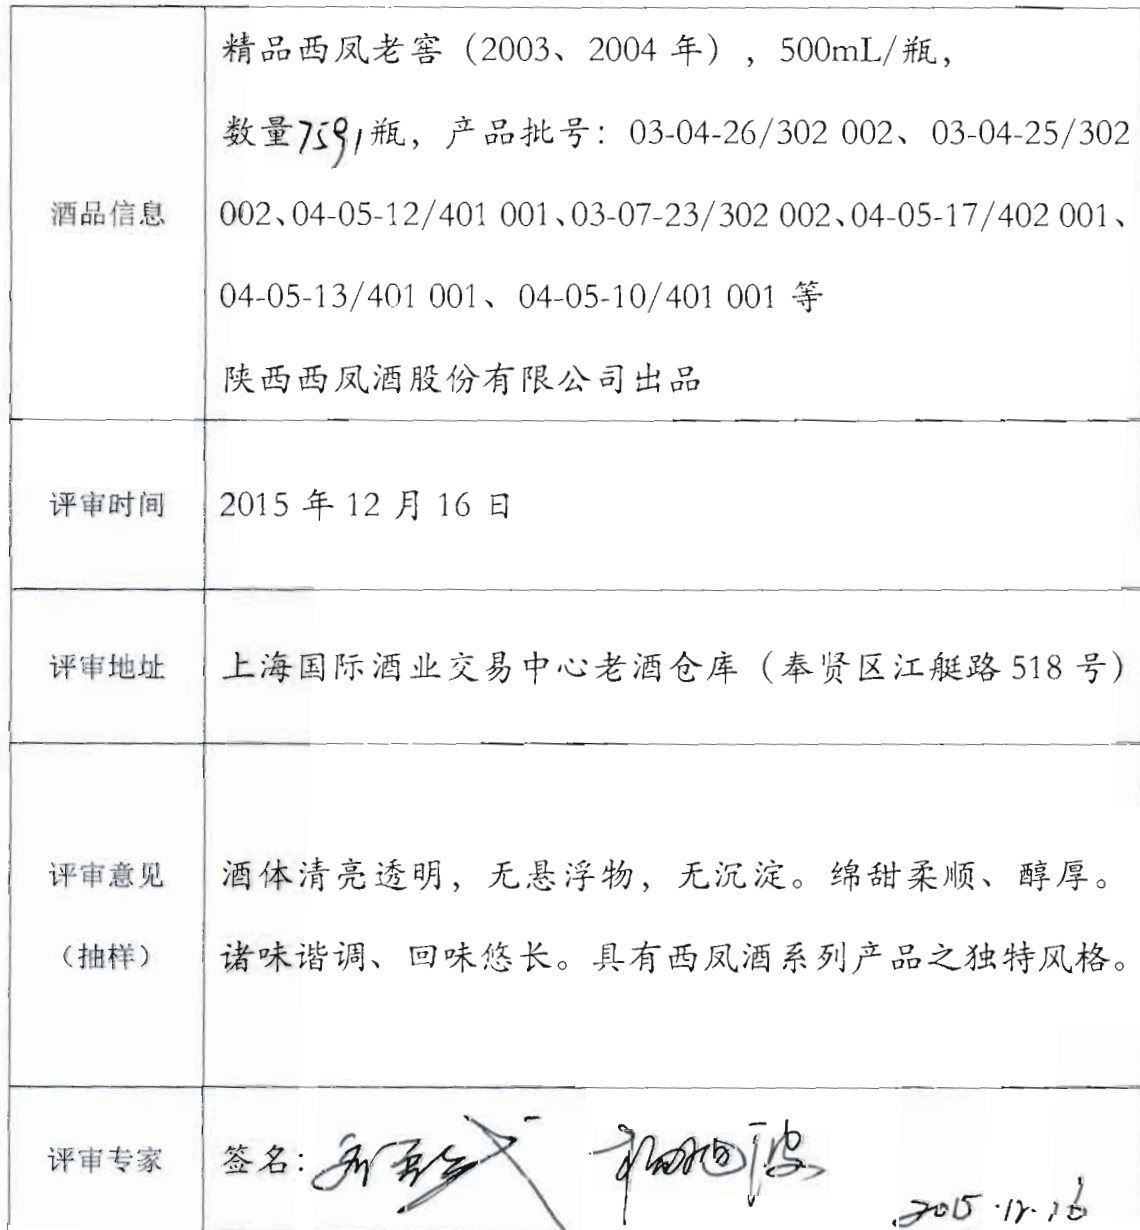 精品西凤老窖（2003、2004 年），500mL/瓶，
数量7591瓶，产品批号：03-04-26/302 002、03-04-25/302
酒品信息
002、04-05-12/401 001、03-07-23/302 002、04-05-17/402 001、
04-05-13/401 001、04-05-10/401 001 等
陕西西凤酒股份有限公司出品
评审时间
2015 年 12 月 16 日
评审地址
上海国际酒业交易中心老酒仓库（奉贤区江艇路 518 号）
评审意见
（抽样）
酒体清亮透明，无悬浮物，无沉淀。绵甜柔顺、醇厚。
诸味谐调、回味悠长。具有西凤酒系列产品之独特风格。
评审专家
签名：
2015.12.16